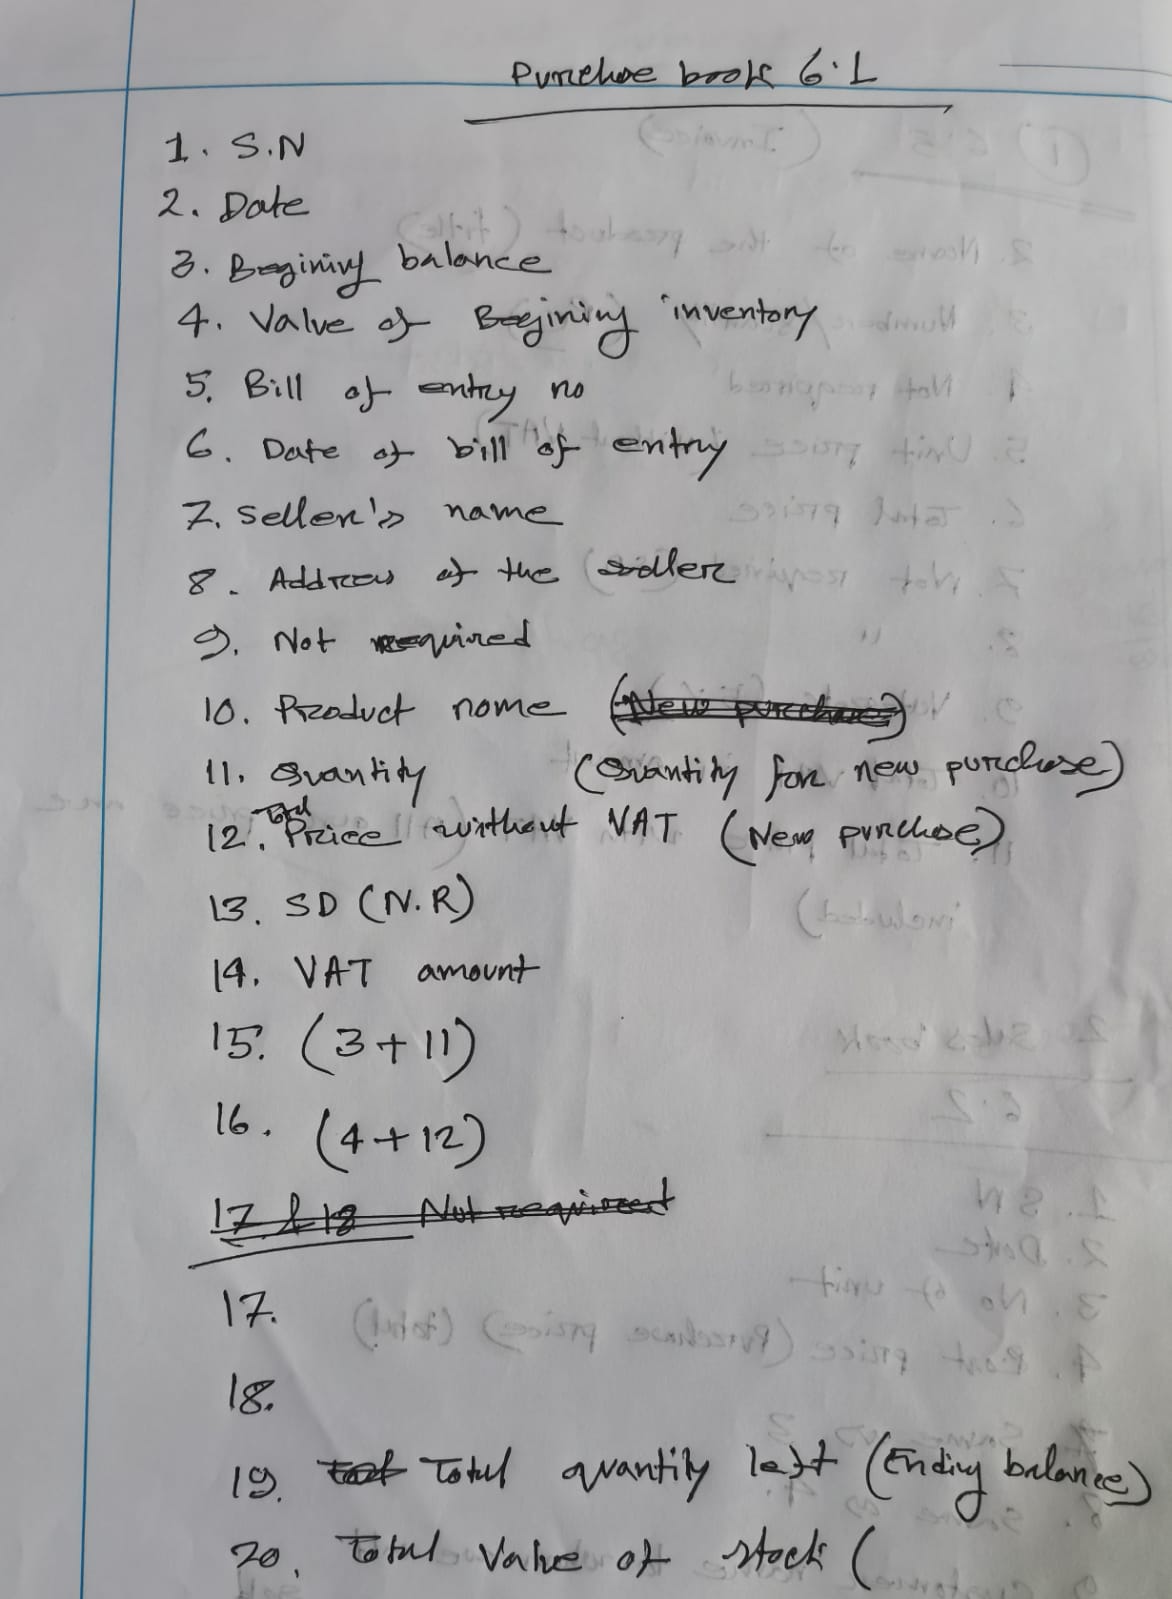 Purchase book 6.1
1. S.N
2. Date
3. Begining balance
4. Value of Begining inventory
5. Bill of entry no
6. Date of bill of entry
7. Seller's name
8. Address of the seller
9. Not required
10. Product name (New purchase)
11. Quantity (Quantity for new purchase)
12. Total Price without VAT (New purchase)
13. SD (N.R)
14. VAT amount
15. (3+11)
16. (4+12)
17 & 18 Not required
17.
18.
19. Total quantity left (Ending balance)
20. Total Value of stock (